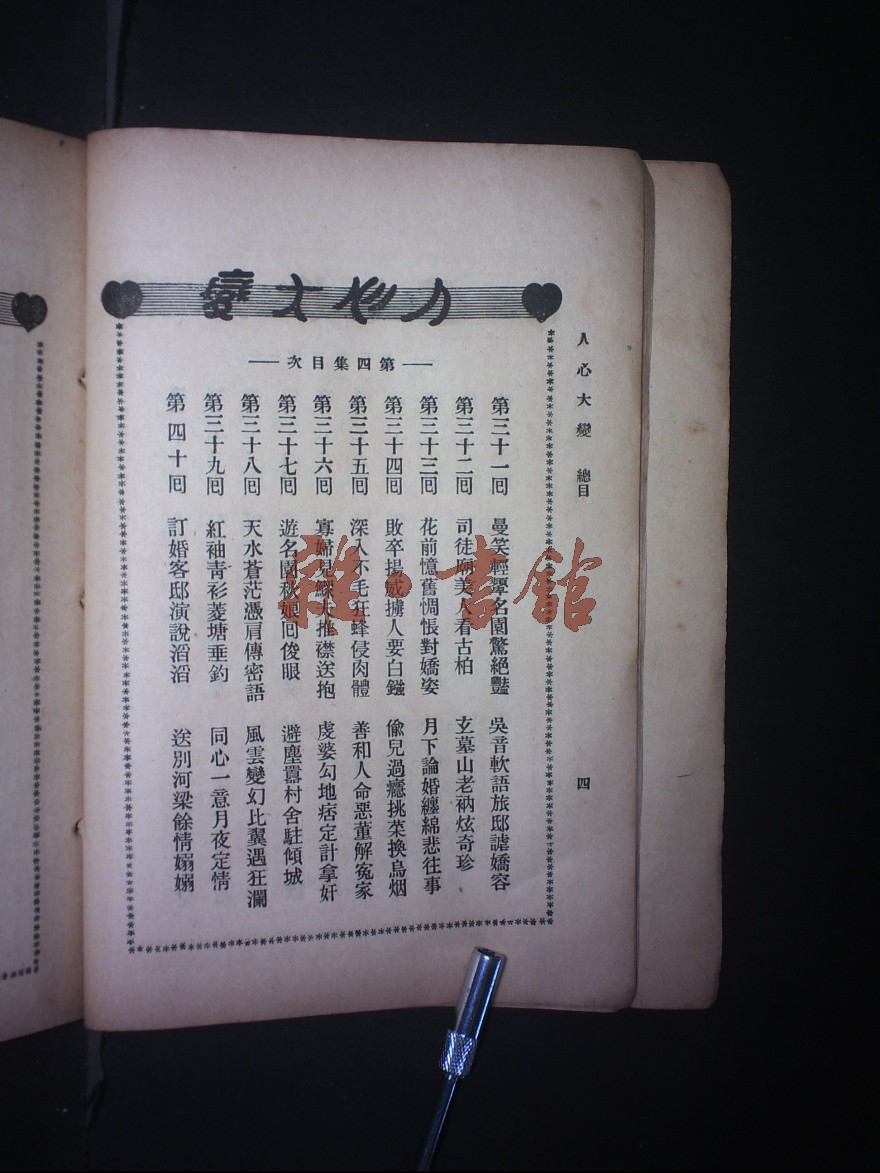 人心大變　總目
四
人心大變
—第四集目次—
第三十一囘　曼笑輕顰名園驚絕豔　吳音軟語旅邸謔嬌容
第三十二囘　司徒廟美人看古柏　玄墓山老衲炫奇珍
第三十三囘　花前憶舊惆悵對嬌姿　月下論婚纏綿悲往事
第三十四囘　敗卒揚威擄人要白鏹　偸兒過癮挑菜換烏烟
第三十五囘　深入不毛狂蜂侵肉體　善和人命惡董解寃家
第三十六囘　寡婦見鰥夫推襟送抱　虔婆勾地痞定計拿奸
第三十七囘　遊名園秋娘囘俊眼　避塵囂村舍駐傾城
第三十八囘　天水蒼茫憑肩傳密語　風雲變幻比翼遇狂瀾
第三十九囘　紅袖靑衫菱塘垂釣　同心一意月夜定情
第四十囘　訂婚客邸演說滔滔　送別河梁餘情嫋嫋
書館